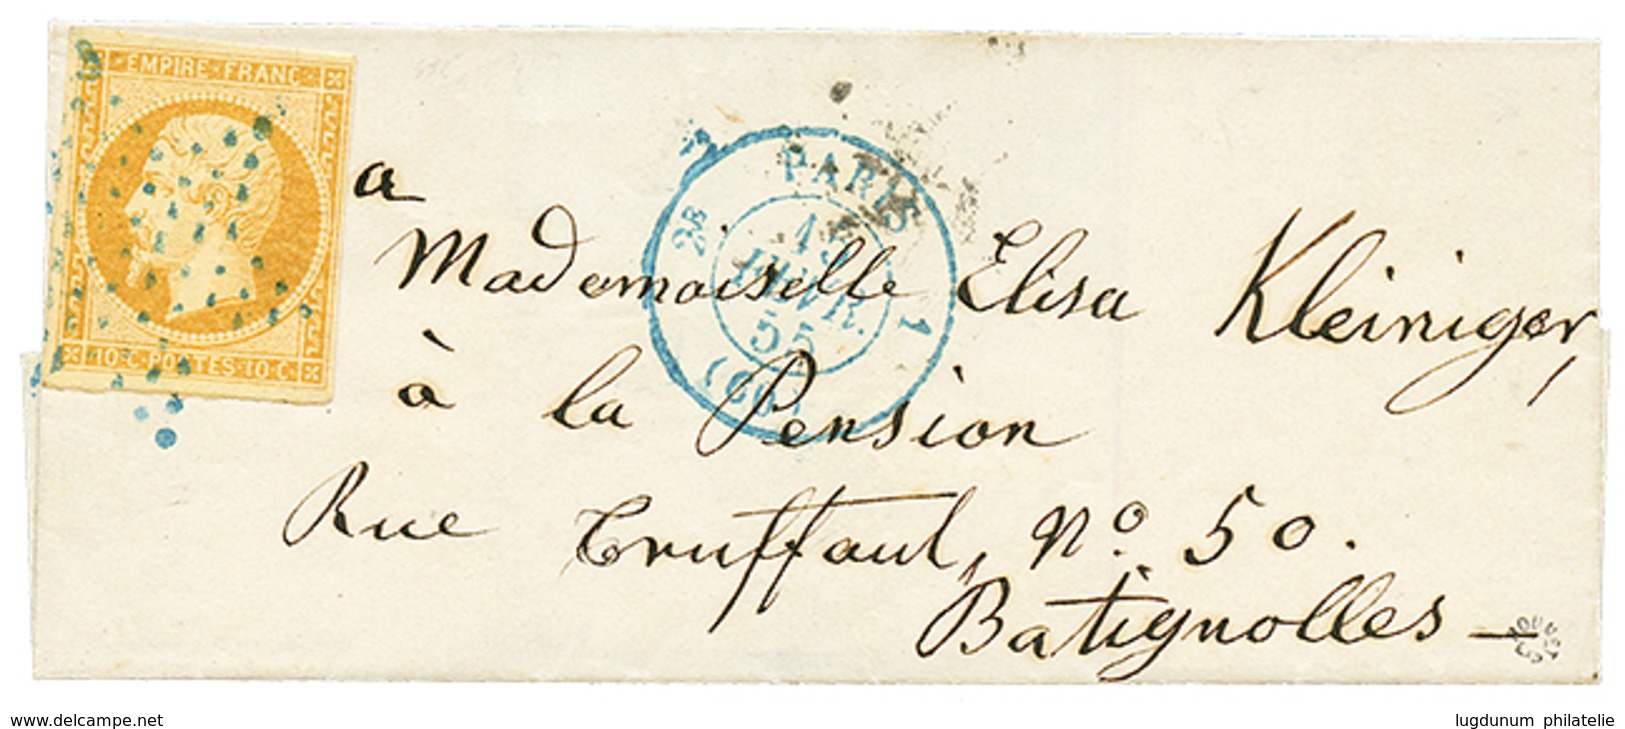 EMPIRE FRANC
10 C POSTES 10 C
PARIS
2B
FEVR.
55
1
(60)
a
Mademoiselle Elisa Kleiniger,
à la Pension
Rue Truffaut, No. 50.
Batignolles
www.delcampe.net
lugdunum philatelie